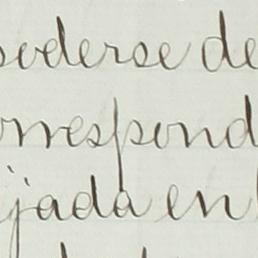 oderse de
orrespond
jada en